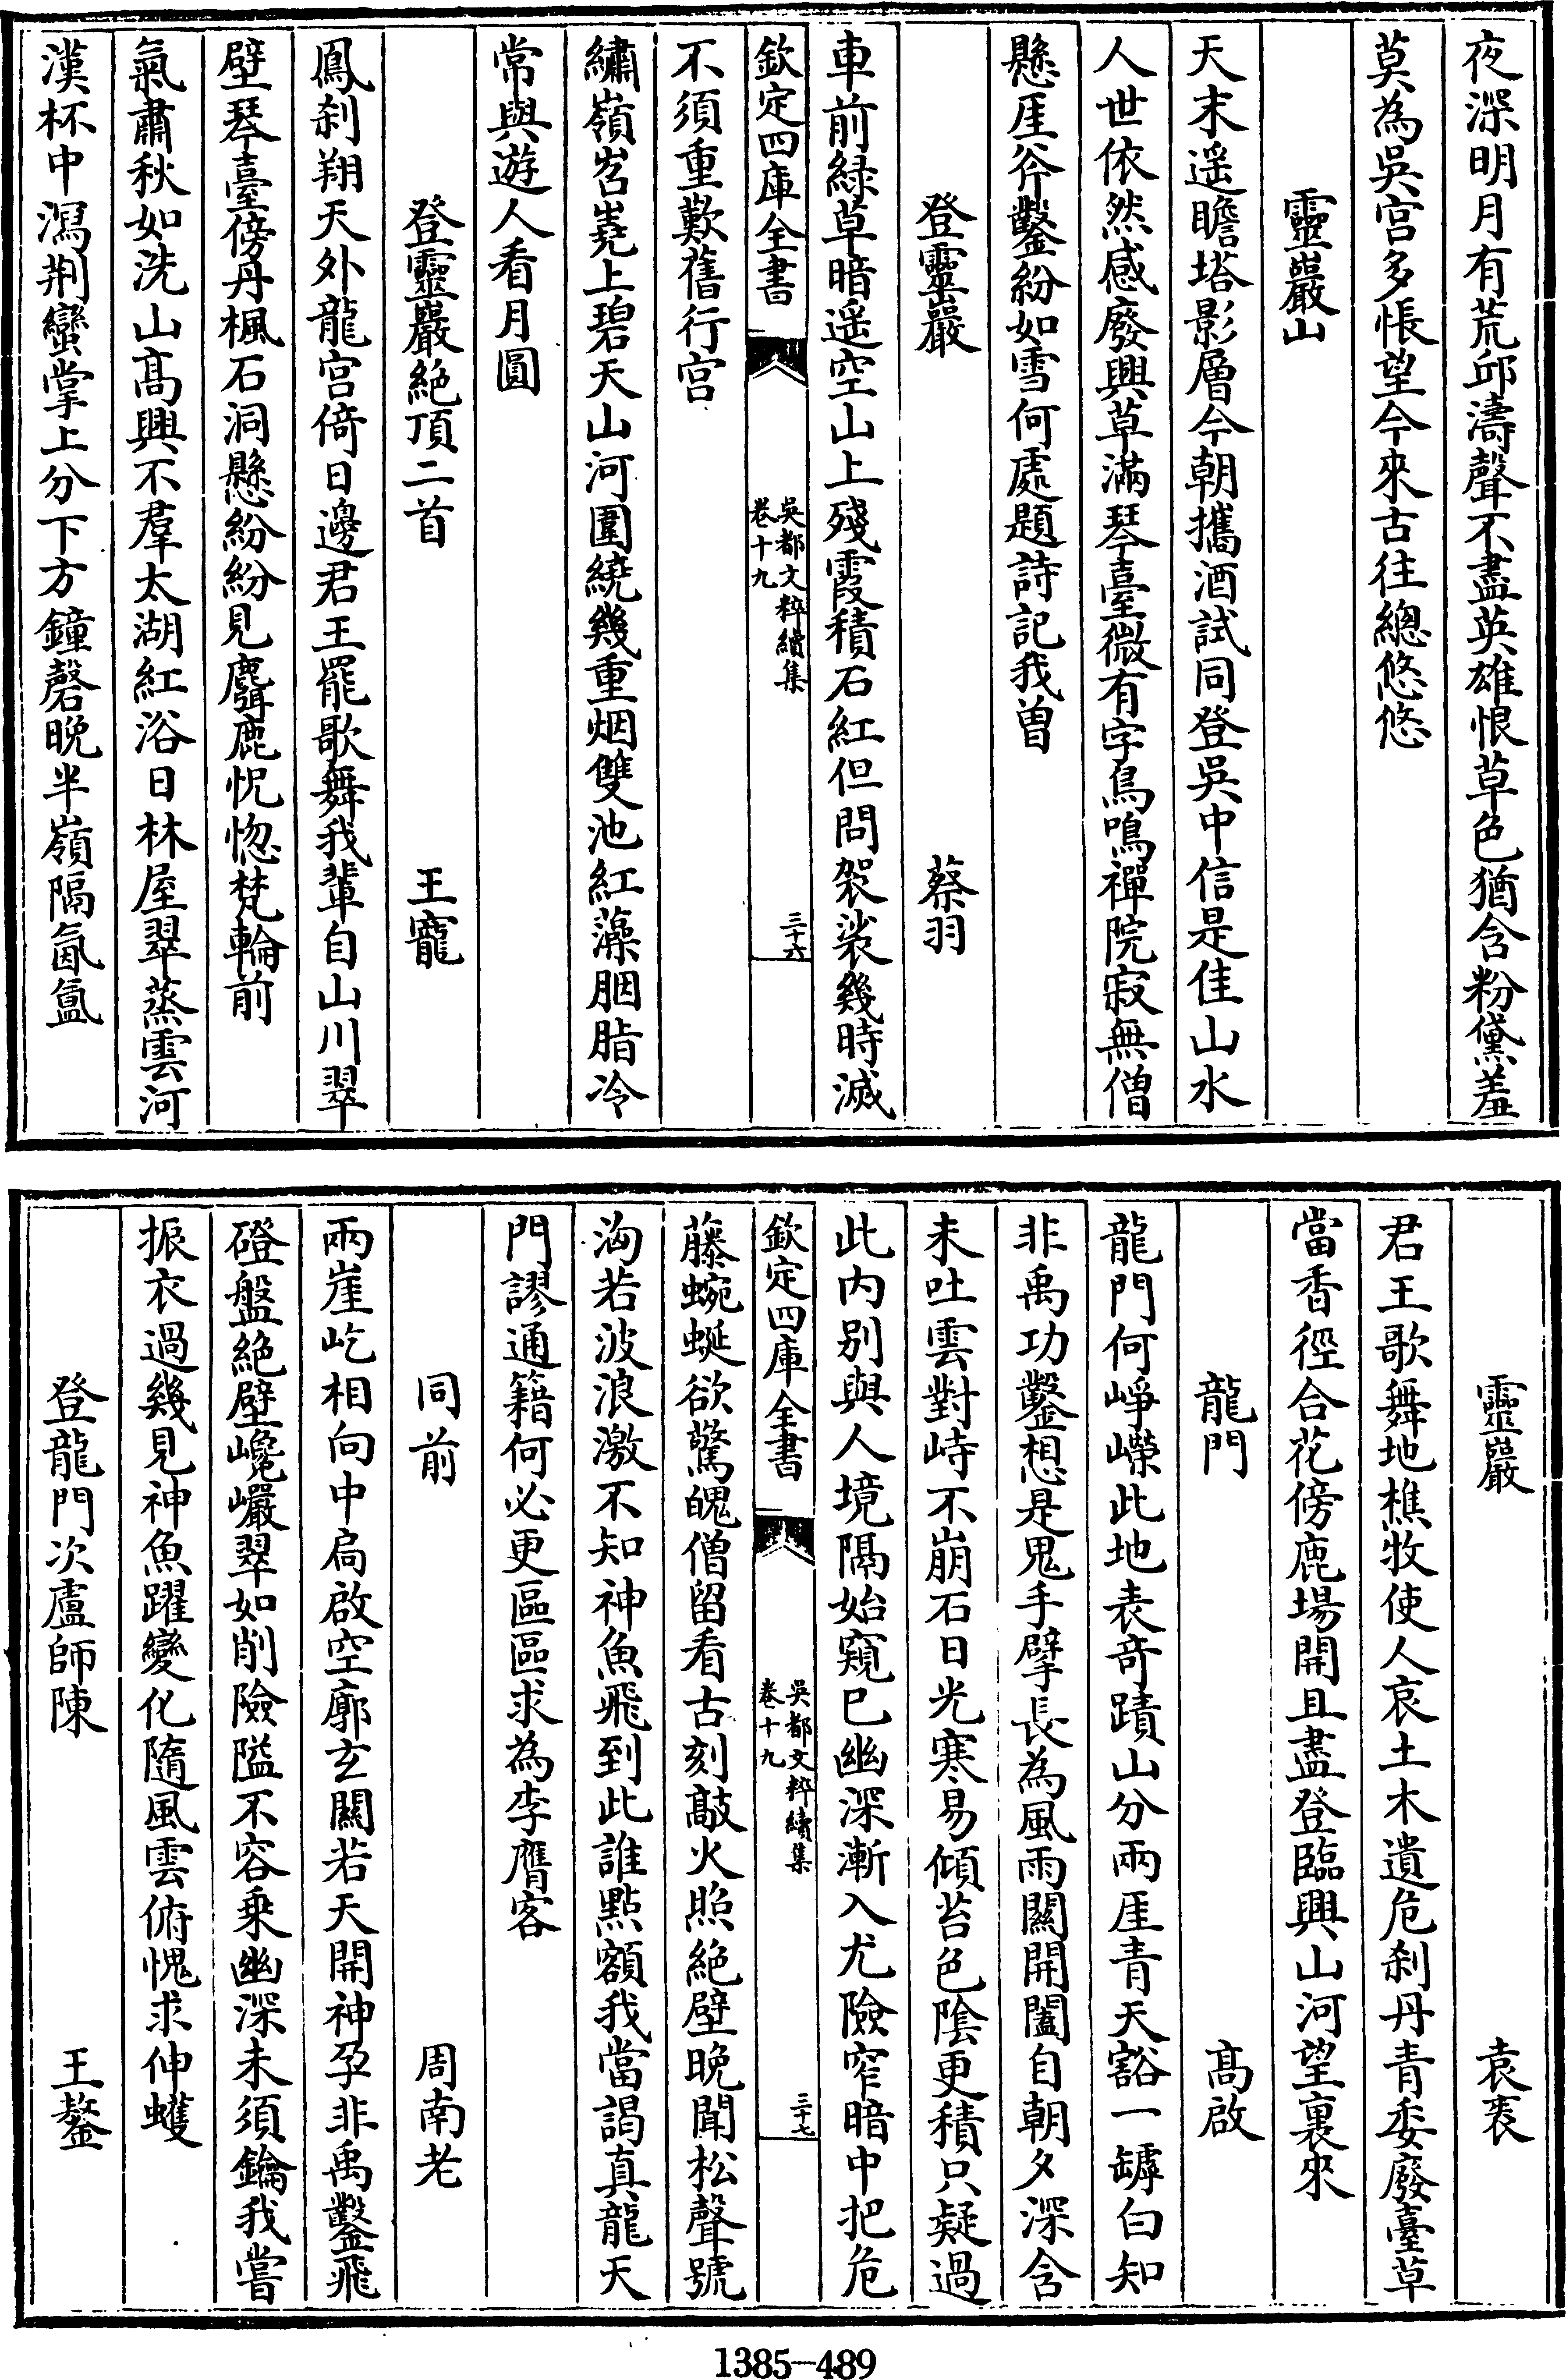 夜深明月有荒邱濤聲不盡英雄恨草色猶含粉黛羞
莫為吳宫多悵望今來古往總悠悠
靈巖山
天末遥瞻塔影層今朝攜酒試同登吳中信是佳山水
人世依然感廢興草滿琴臺微有字鳥鳴禪院寂無僧
懸厓斧鑿紛如雪何處題詩記我曽
登靈巖 蔡羽
車前緑草暗遥空山上殘霞積石紅但問袈裟幾時滅
欽定四庫全書 吳都文粹續集 卷十九 三十六
不須重歎舊行宫
繡嶺岧嶤上碧天山河圍繞幾重烟雙池紅藻胭脂冷
常與遊人看月圓
登靈巖絶頂二首 王寵
鳳刹翔天外龍宫倚日邊君王罷歌舞我輩自山川翠
壁琴臺傍丹楓石洞懸紛紛見麏鹿怳惚梵輪前
氣肅秋如洗山髙興不羣太湖紅浴日林屋翠蒸雲河
漢杯中瀉荆蠻掌上分下方鐘磬晚半嶺隔氤氲
靈巖 袁袠
君王歌舞地樵牧使人哀土木遺危刹丹青委廢臺草
當香徑合花傍鹿場開且盡登臨興山河望裏來
龍門 髙啟
龍門何崢嶸此地表竒蹟山分兩厓青天豁一罅白知
非禹功鑿想是鬼手擘長為風雨闗開闔自朝夕深含
未吐雲對峙不崩石日光寒易傾苔色陰更積只疑過
此内别與人境隔始窺已幽深漸入尤險窄暗中把危
欽定四庫全書 吳都文粹續集 卷十九 三十七
藤蜿蜒欲驚魄僧留看古刻敲火照絶壁晚聞松聲號
洶若波浪激不知神魚飛到此誰點額我當謁真龍天
門謬通籍何必更區區求為李膺客
同前 周南老
兩崖屹相向中扃啟空廓玄闗若天開神孕非禹鑿飛
磴盤絶壁巉巗翠如削險隘不容乗幽深未須鑰我嘗
振衣過幾見神魚躍變化隨風雲俯愧求伸蠖
登龍門次盧師陳 王鏊
1385—489